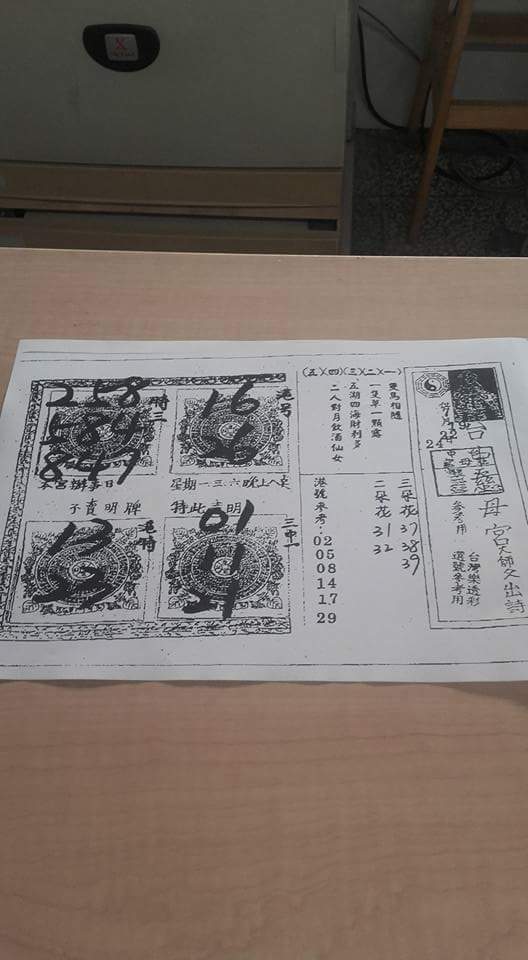 母宮天師文出詩
台灣樂透彩
參考用 選號參考用
24
(五)(四)(三)(二)(一)
雙馬相隨
一枝草一點露
五湖四海財利多
二人對月飲酒仙女
三朵花 37
38
39
二朵花 31
32
港號參考:
02
05
08
14
17
29
258
584
849
特三
16
港号
本宮辦事日
星期一三六晚上八点
不賣明牌
特此声明
13
港特
01
4
三中一
X